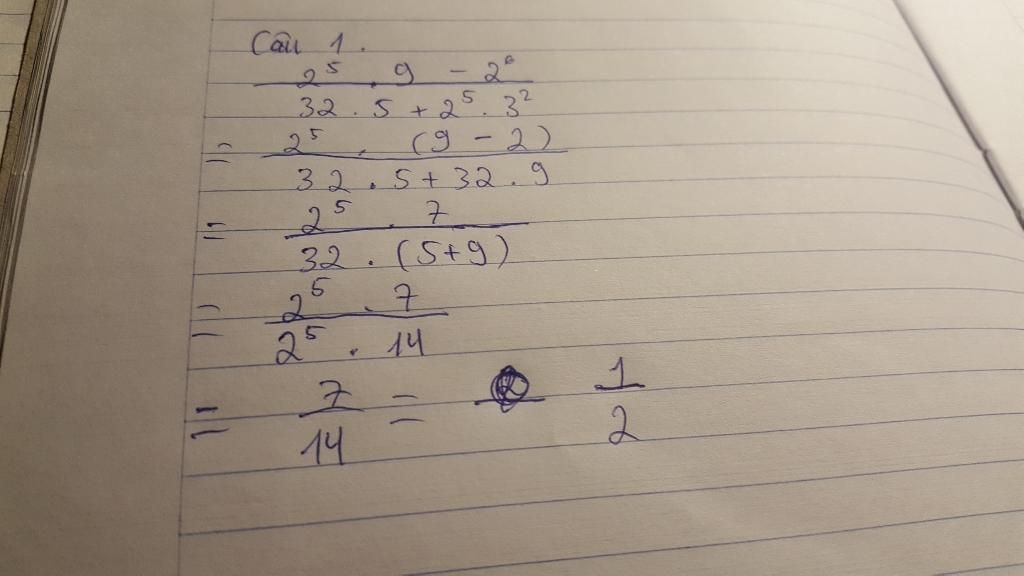 Câu 1.
2⁵ . 9 - 2⁶
32 . 5 + 2⁵ . 3²
= 2⁵ . (9 - 2)
32 . 5 + 32 . 9
= 2⁵ . 7
32 . (5+9)
= 2⁵ . 7
2⁵ . 14
= 7 = 1
14 2